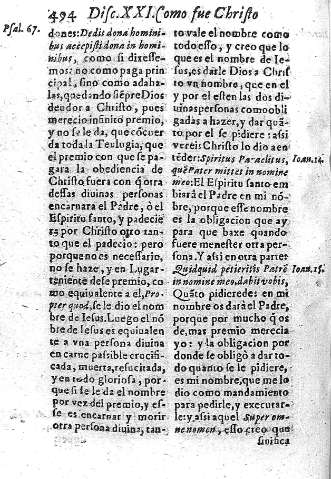 494 Disc.XXI.Como fue Christo
Psal. 67.
dones: Dedit dona homini-
bus accepisti dona in homi-
nibus, como si dixesse-
mos: no como paga prin-
cipal, sino como adaha-
las, quedando siẽpre Dios
deudor a Christo, pues
merecio infinito premio,
y no se le da, que cõcuer
da toda la Teulugia, que
el premio con que se pa-
gara la obediencia de
Christo fuera con q̃ otra
dessas diuinas personas
encarnara el Padre, ò el
Espiritu santo, y padecie
ra por Christo otro tan-
to que el padecio: pero
porque no es necessario,
no se haze, y en Lugar-
teniente desse premio, co
mo equiualente a el, Pro-
pter quod, se le dio el nom
bre de Iesus. Luego el nõ
bre de Iesus es equiualen
te a vna persona diuina
en carne passible crocifi-
cada, muerta, resucitada,
y en todo gloriosa, por-
que si se le da el nombre
por vez del premio, y es-
se es encarnar y morir
otra persona diuina, tan-
to vale el nombre como
todo esso, y creo que lo
que es el nombre de Ie-
sus, es darle Dios a Chris
to vn nombre, que en el
y por el esten las dos di-
uinas personas como obli
gadas a hazer, y dar quã-
to por el se pidiere: assi
vereis Christo lo dio a en
tẽder: Spiritus Paraclitus,
Ioan. 14.
quẽ Pater mittet in nomine
meo: El Espiritu santo em
biará el Padre en mi nõ-
bre, porque esse nombre
es la obligacion que ay
para que baxe quando
fuere menester otra per-
sona. Y assi en otra parte:
Quidquid petieritis Patrẽ
Ioan. 15.
in nomine meo, dabit vobis,
Quãto pidierede: en mi
nombre os dará el Padre,
porque por mucho q̃ os
de, mas premio merecia
yo: y la obligacion por
donde se obligò a dar to-
do quanto se le pidiere,
es mi nombre, que me lo
dio como mandamiento
para pedirle, y executar-
le: y assi aquel Super om-
ne nomen, esso creo que
sinifica